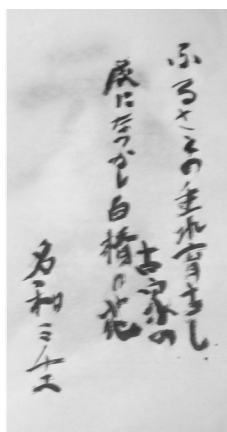 ふるさとの生れ育ちし
古家の
庭になつかし白椿の花
名和ミチエ